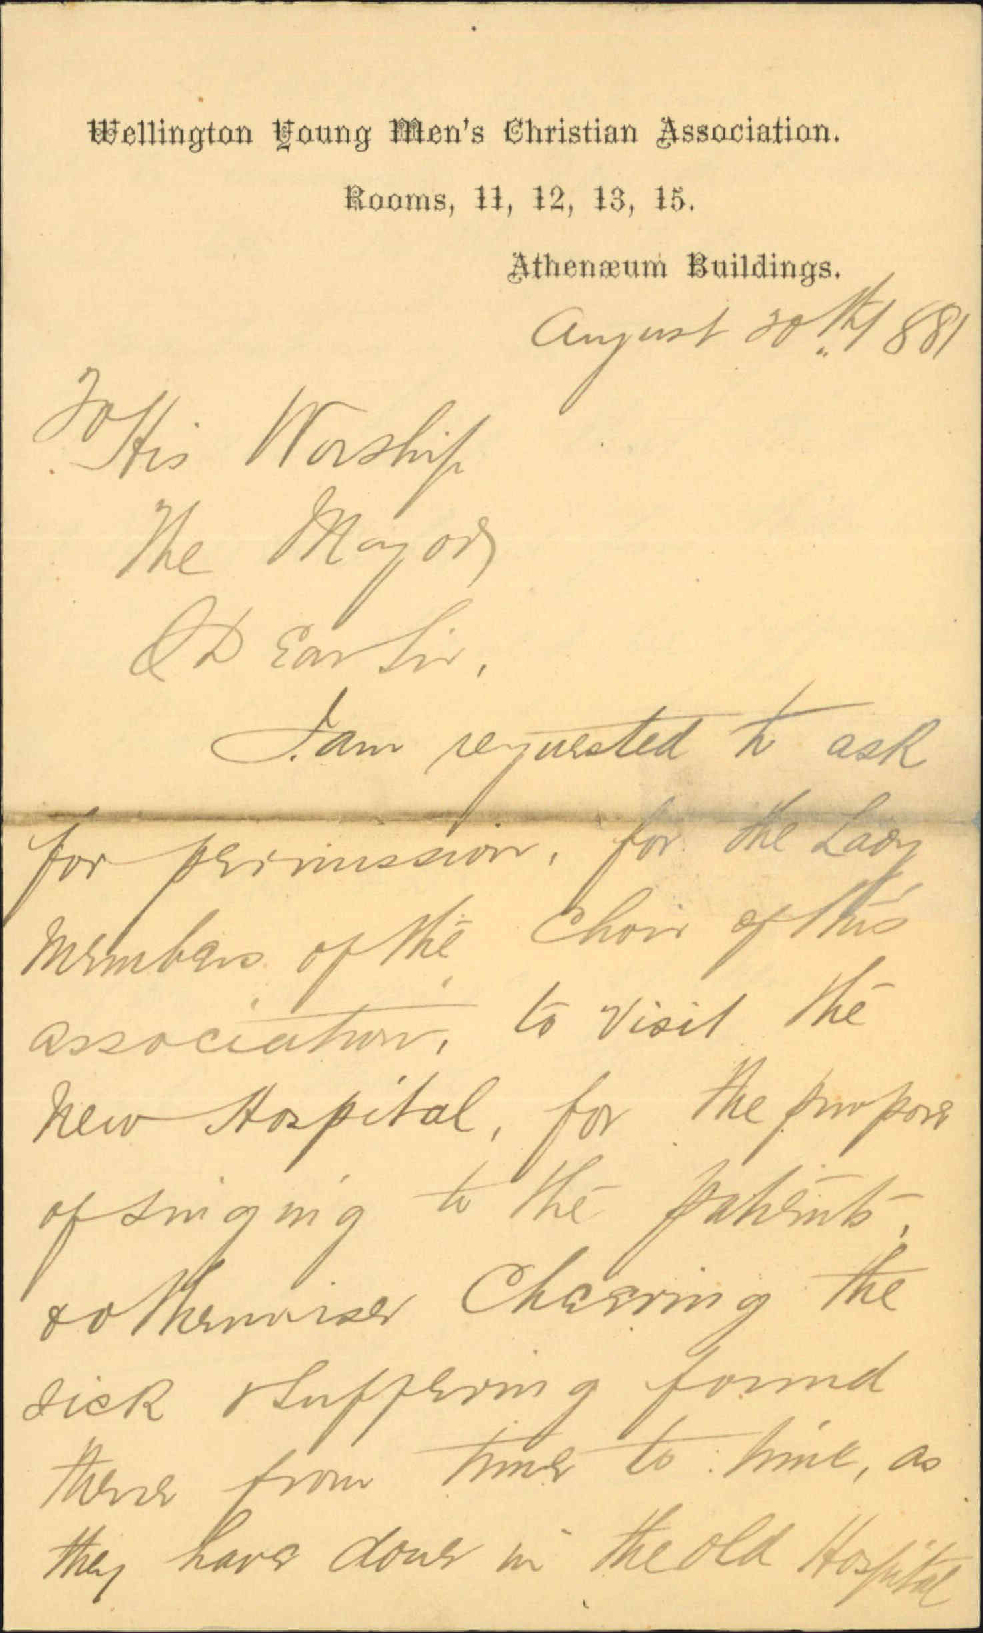 Wellington Young Men's Christian Association.
Rooms, 11, 12, 13, 15.
Athenæum Buildings.
August 20th 1881
To His Worship
The Mayor
Dear Sir,
I am requested to ask
for permission, for the Lady
members of the Choir of this
association, to visit the
New Hospital, for the purpose
of singing to the patients,
& otherwise Cheering the
sick & suffering found
there from time to time, as
they have done in the old Hospital